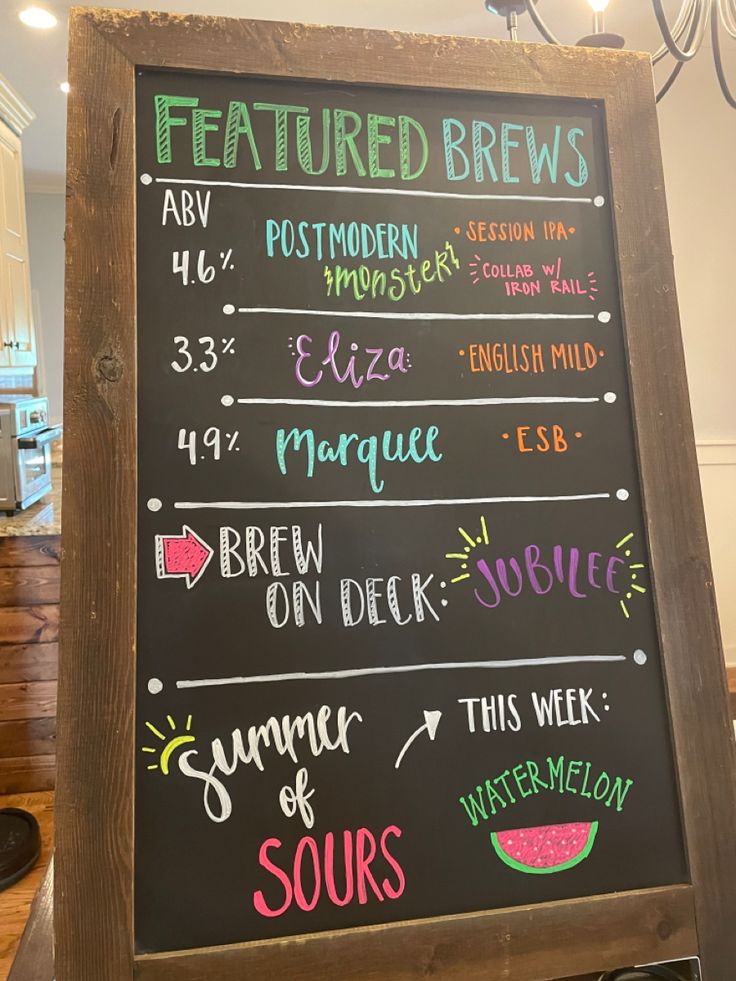 FEATURED BREWS
ABV
4.6% POSTMODERN MONSTER • SESSION IPA •
COLLAB W/
IRON RAIL
3.3% Eliza • ENGLISH MILD •
4.9% Marquee • ESB •
BREW
ON DECK: JUBILEE
Summer
of
SOURS
THIS WEEK:
WATERMELON